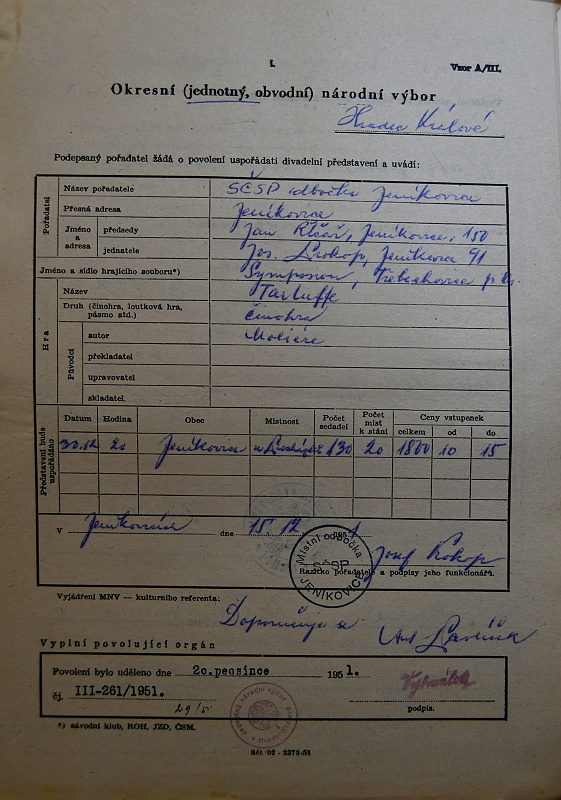 I.
Vzor A/III.
Okresní (jednotný, obvodní) národní výbor
Hradec Králové
Podepsaný pořadatel žádá o povolení uspořádati divadelní představení a uvádí:
Pořadatel
Název pořadatele SČSP odbočka Jeníkovice
Přesná adresa Jeníkovice
Jméno a adresa
předsedy Jan Jeníkovice, 150
jednatele Jos. Prokop, Jeníkovice 91
Jméno a sídlo hrajícího souboru*) Symposion, Třebechovice p. Or.
Hra
Název Tartuffe
Druh (činohra, loutková hra, pásmo atd.) činohra
Původci
autor Moliére
překladatel
upravovatel
skladatel
Představení bude uspořádáno
Datum Hodina Obec Místnost Počet sedadel Počet míst k stání Ceny vstupenek
celkem od do
30.12 20 Jeníkovice u 130 20 1800 10 15
V Jeníkovicích dne 15. 12. 195 1
Josef Prokop
Razítko pořadatele a podpisy jeho funkcionářů.
Místní odbočka
SČSP
JENÍKOVICE
Vyjádření MNV — kulturního referenta:
Doporučuje se
Vyplní povolující orgán
Povolení bylo uděleno dne 20.prosince 195 1.
čj. III-261/1951.
podpis.
*) závodní klub, ROH, JZD, ČSM.
Mét 02 - 2273-51